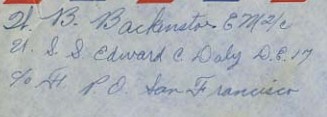 H. B. Backinstos EM2/c
U. S. S Edward C Daly D.E. 17
c/o F. P.O. San Francisco